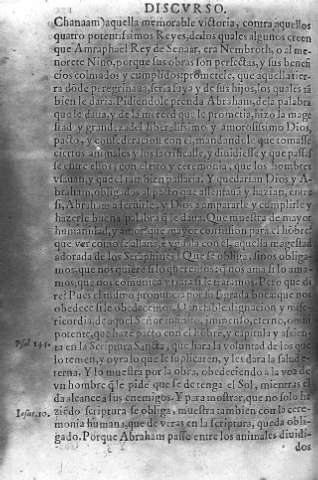 DISCVRSO.
Chanaam) aquella memorable victoria, contra aquellos
quatro potentissimos Reyes, de los quales algunos creen
que Amraphael Rey de Senaar, era Nembroth, o al me-
nor este Nino, porque sus obras son perfectas, y sus benefi
cios colmados y cumplidos: promete le, que aquella tier-
ra dõde peregrinaua, seria suya y de sus hijos, los quales tã
bien le daria. Pidiendole prenda Abraham, de la palabra
que le daua, y de la merced que le prometia, hizo la mage
stad y grandeza del liberalissimo y amorosissimo Dios,
pacto, y confederacion con el, mandandole que tomasse
ciertos animales y los sacrificasse, y diuidiesse y que passas
se entre ellos con el rito y ceremonia, que los hombres
vsauan, y que el tambien passaria. Y quedarian Dios y A-
braham, obligados al pacto que assentauã y hazian, entre
si, Abraham a seruirle, y Dios a ampararle y cumplirle y
hazerle buena palabra q̃ le daua. Que muestra de mayor
humanidad, y amor, que mayor confussion para el hõbre
que ver como se
adorada de los Seraphines? Que se obliga, sino obliga
mos, que nos quiere si lo queremos, q̃ nos ama si lo ama-
mos, que nos comunica y trata si le tratamos. Pero que di
re? Pues el mismo pronuncia por su sagrada boca, que nos
obedece si le obedecemos. O notable dignacion y mise-
ricordia, de aquel Señor infinito, immenso, eterno, omni
potente, que haze pacto con el hõbre, y capitula y assien-
Psal. 144. ta en la Scriptura Sancta, que hara la voluntad de los que
lo temen, y oyra lo que le suplicaren, y les dara la salud e-
terna. Y lo muestra por la obra, obedeciendo a la voz de
Iosue. 10. vn hombre q̃ le pide que se detenga el Sol, mientras el
da alcance a sus enemigos. Y para mostrar, que no solo ha
ziẽdo scriptura se obliga, muestra tambien con la cere-
monia humana, que de veras en la scriptura, queda obli-
gado. Porque Abraham passo entre los animales diuidi-
dos